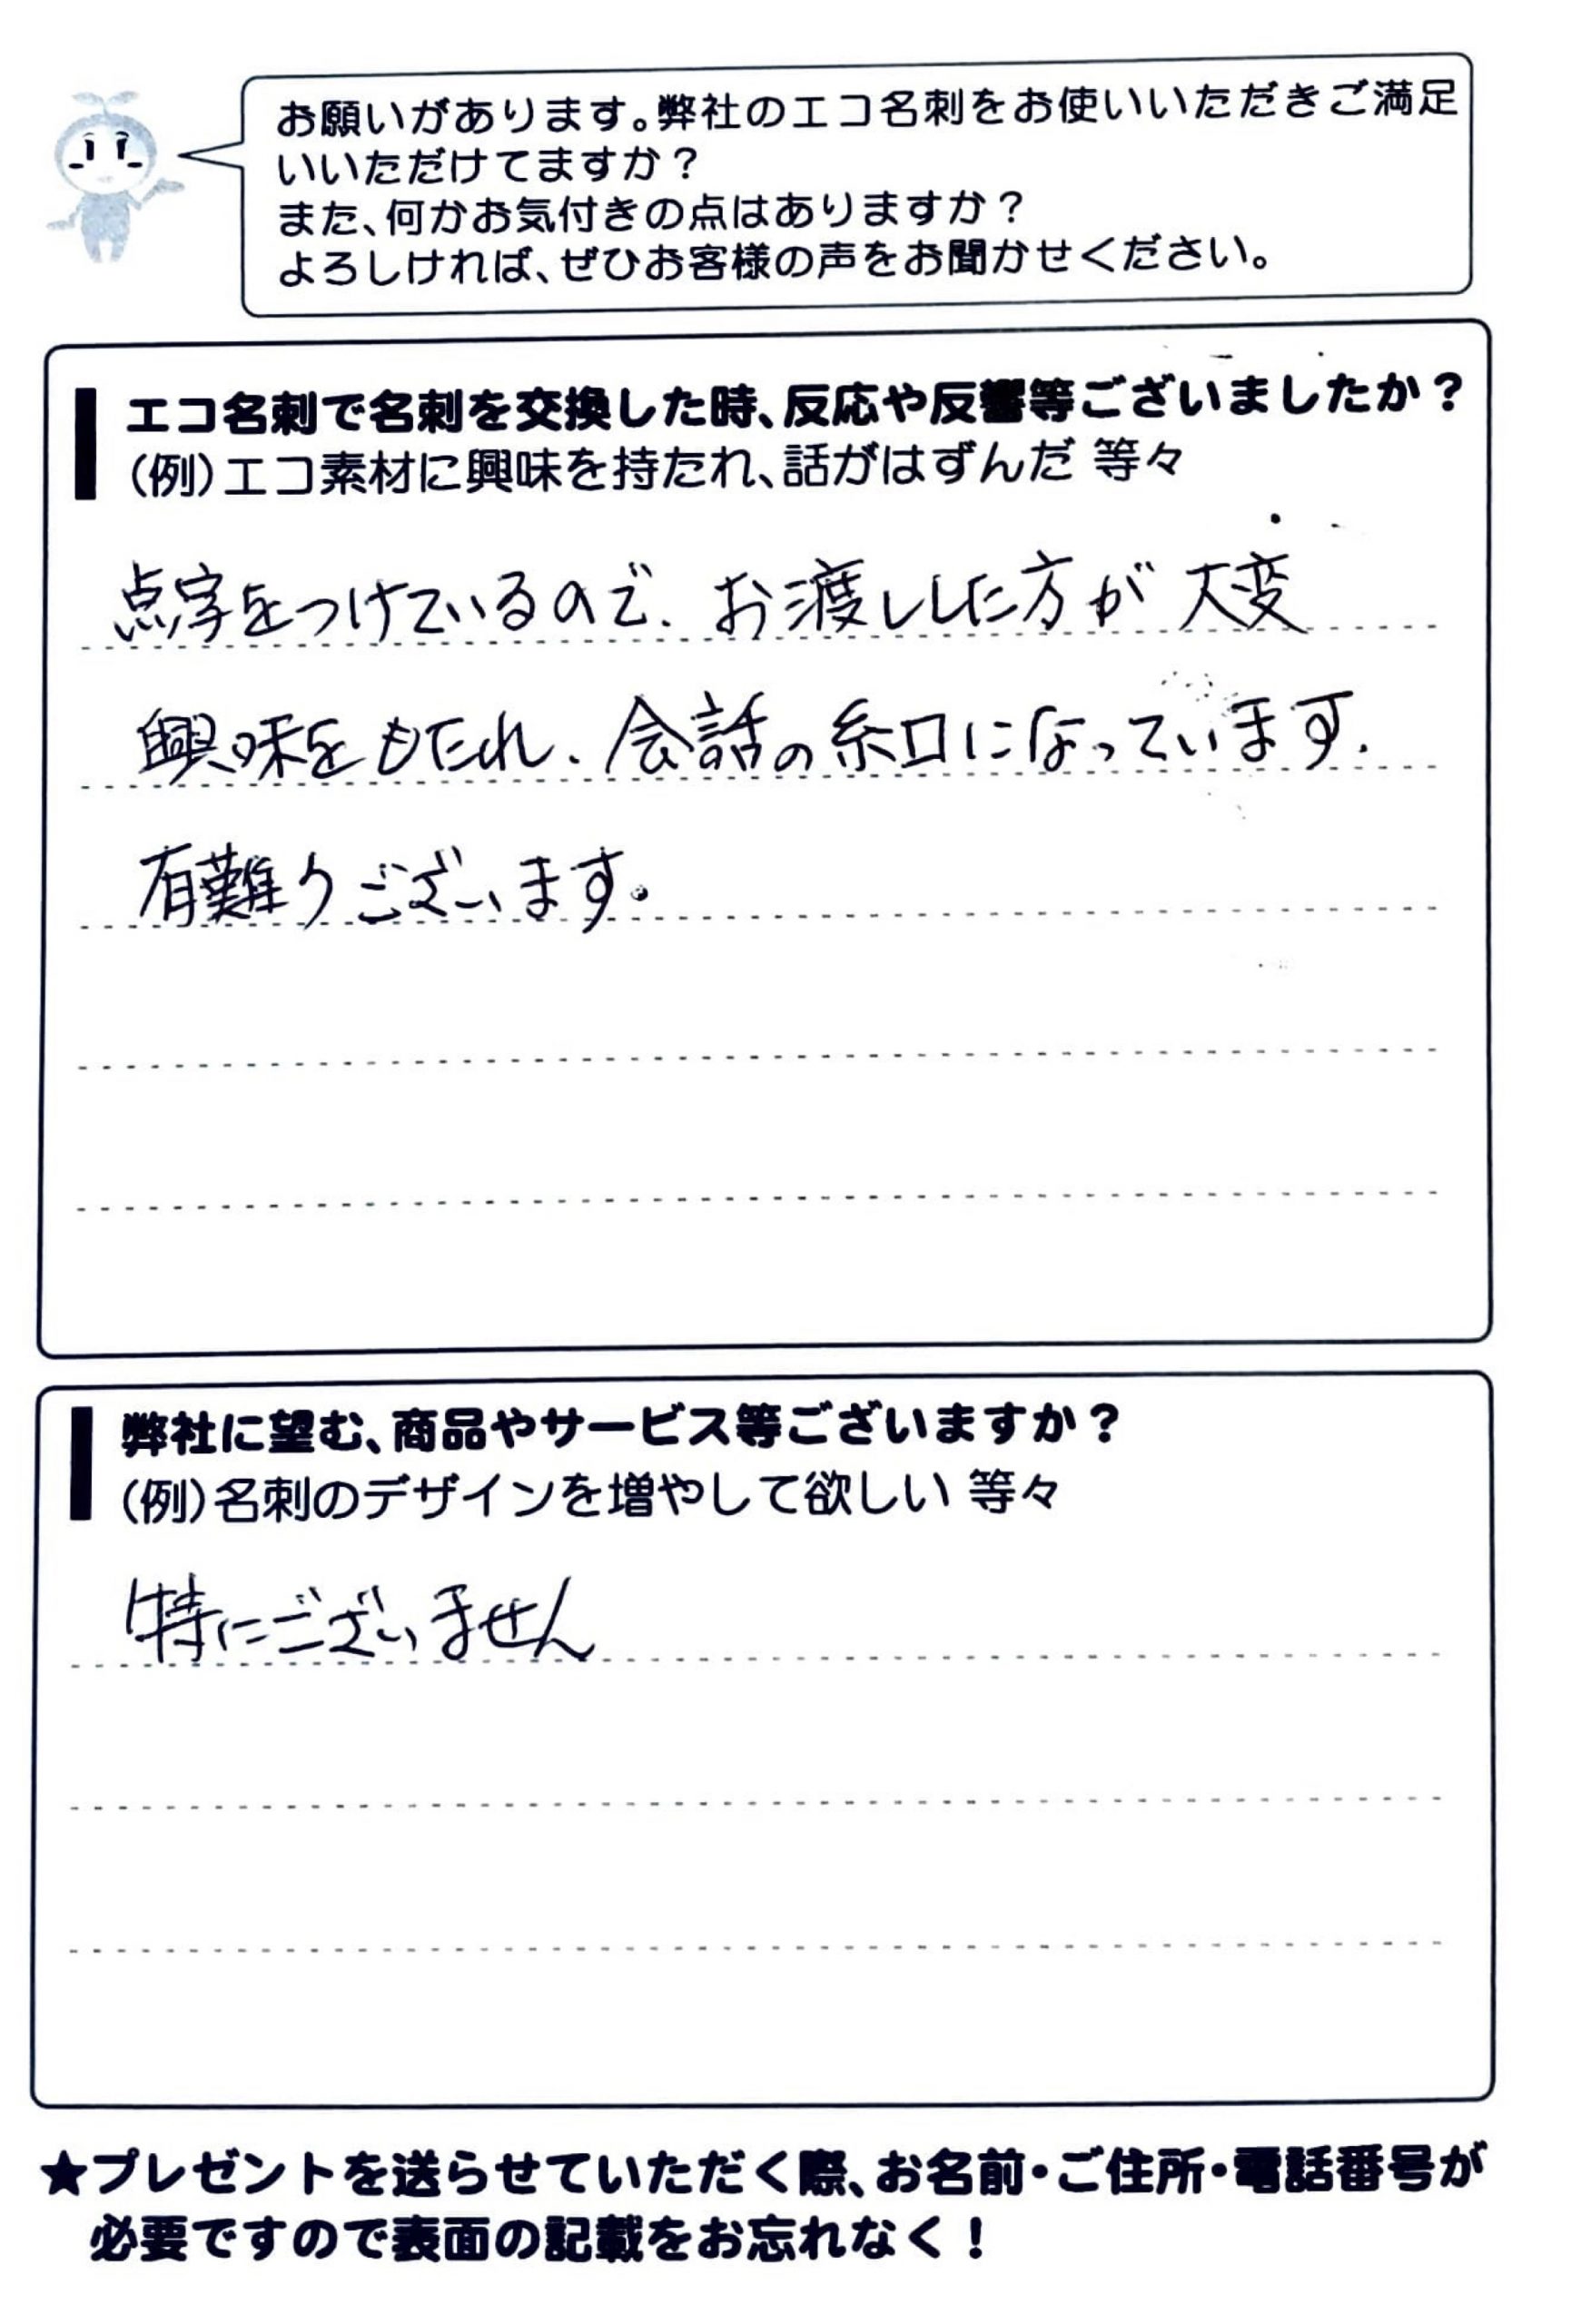 お願いがあります。弊社のエコ名刺をお使いいただきご満足
いいただけてますか？
また、何かお気付きの点はありますか？
よろしければ、ぜひお客様の声をお聞かせください。
エコ名刺で名刺を交換した時、反応や反響等ございましたか？
（例）エコ素材に興味を持たれ、話がはずんだ 等々
点字をつけているので、お渡しした方が大変
興味をもたれ、会話の糸口になっています。
有難うございます。
弊社に望む、商品やサービス等ございますか？
（例）名刺のデザインを増やして欲しい 等々
特にございません
★プレゼントを送らせていただく際、お名前・ご住所・電話番号が
必要ですので表面の記載をお忘れなく！